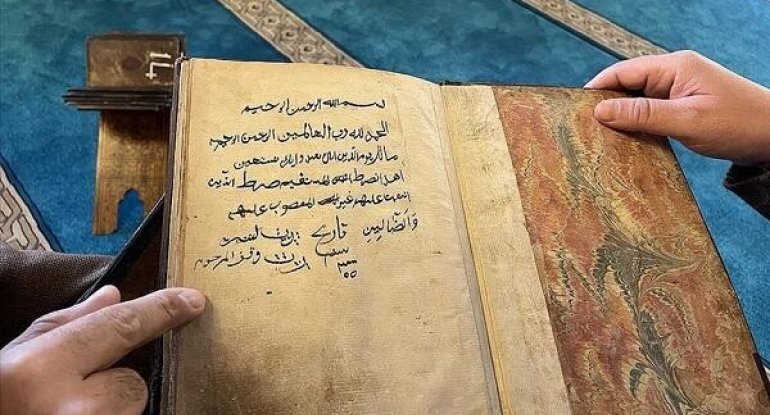 بسم الله الرحمن الرحيم
الحمد لله رب العالمين الرحمن الرحيم
مالك يوم الدين اياك نعبد واياك نستعين
اهدنا الصرط المستقيم صرط الذين
انعمت عليهم غير المغضوب عليهم
وَالضَّالِينِ تاريخ
سنه
وقف المرحوم
٥٥